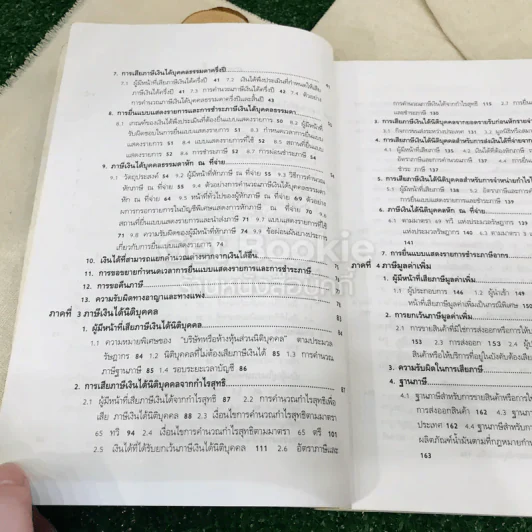 7. การเสียภาษีเงินได้บุคคลธรรมดาครึ่งปี
7.1 ผู้มีหน้าที่เสียภาษีเงินได้ครึ่งปี 41 7.2 เงินได้พึงประเมินที่กำหนดให้เสีย
ภาษีเงินได้ครึ่งปี 41 7.3 การคำนวณภาษีเงินได้ครึ่งปี 42 7.4 ตัวอย่าง
การคำนวณภาษีเงินได้ครึ่งปีและสิ้นปี 43
8. การยื่นแบบแสดงรายการและการชำระภาษีเงินได้บุคคลธรรมดา
8.1 เกณฑ์ของเงินได้พึงประเมินที่ต้องยื่นแบบแสดงรายการ 50 8.2 ผู้มีหน้าที่
รับผิดชอบในการยื่นแบบแสดงรายการ 51 8.3 กำหนดเวลาการยื่นแบบ
แสดงรายการ 51 8.4 แบบแสดงรายการที่ใช้ 52 8.5 สถานที่ยื่นแบบ
แสดงรายการ 52 8.6 การชำระภาษี 52 8.7 การผ่อนชำระภาษี 54
9. ภาษีเงินได้บุคคลธรรมดาหัก ณ ที่จ่าย
9.1 วัตถุประสงค์ 54 9.2 ผู้มีหน้าที่หักภาษี ณ ที่จ่าย 55 9.3 วิธีการคำนวณ
หักภาษี ณ ที่จ่าย 55 9.4 ตัวอย่างการคำนวณภาษีเงินได้บุคคลธรรมดาหัก
ณ ที่จ่าย 64 9.5 หน้าที่ทั่วไปของผู้หักภาษี ณ ที่จ่าย 69
ผลการกรอกรายการในบัญชีพิเศษแสดงการหักภาษี ณ ที่จ่าย 70
สถานที่ยื่นแบบแสดงรายการและนำส่งภาษี 71 9.7 แบบแสดงรายการที่ใช้
71 9.8 ความรับผิดของผู้มีหน้าที่หักภาษี 74 9.9 ข้อผ่อนผันบางประการ
เกี่ยวกับการยื่นแบบแสดงรายการ 74
10. เงินได้ที่สามารถแยกคำนวณต่างหากจากเงินได้อื่น
11. การขอขยายกำหนดเวลาการยื่นแบบแสดงรายการและการชำระภาษี
12. การขอคืนภาษี
13. ความรับผิดทางอาญาและทางแพ่ง
ภาคที่ 3 ภาษีเงินได้นิติบุคคล
1. ผู้มีหน้าที่เสียภาษีเงินได้นิติบุคคล
1.1 ความหมายพิเศษของ "บริษัทหรือห้างหุ้นส่วนนิติบุคคล" ตามประมวล
รัษฎากร 84 1.2 นิติบุคคลที่ไม่ต้องเสียภาษีเงินได้ 85 1.3 การคำนวณ
ภาษีฐานภาษี 85 1.4 รอบระยะเวลาบัญชี 86
2. การเสียภาษีเงินได้นิติบุคคลจากกำไรสุทธิ 87
2.1 ผู้มีหน้าที่เสียภาษีเงินได้จากกำไรสุทธิ 87 2.2 การคำนวณกำไรสุทธิเพื่อ
เสีย ภาษีเงินได้นิติบุคคล 88 2.3 เงื่อนไขการคำนวณกำไรสุทธิตามมาตรา
65 ทวิ 94 2.4 เงื่อนไขการคำนวณกำไรสุทธิตามมาตรา 65 ตรี 101
2.5 เงินได้ที่ได้รับยกเว้นภาษีเงินได้นิติบุคคล 111 2.6 อัตราภาษีและ
การคำนวณภาษีเงินได้จากกำไรสุทธิ 115 2.7 การ
3. การเสียภาษีเงินได้นิติบุคคลจากยอดรายรับก่อนหักรายจ่าย
3.1 กิจการขนส่งระหว่างประเทศ 131 3.2 มูลนิธิหรือสมาคม
4. การเสียภาษีเงินได้นิติบุคคลสำหรับการส่งเงินได้ที่จ่ายจาก
4.1 ผู้มีหน้าที่เสียภาษี 135
อัตราภาษีและการคำนวณภาษี 137 4.4 การยื่นแบบ
ชำระ ภาษี 137
5. การเสียภาษีเงินได้นิติบุคคลสำหรับการจำหน่ายกำไร
5.1 ผู้มีหน้าที่เสียภาษี 5.2 อัตราภาษีและการ
6. ภาษีเงินได้นิติบุคคลหัก ณ ที่จ่าย
7. การยื่นแบบแสดงรายการและการชำระภาษีอากร
ภาคที่ 4 ภาษีมูลค่าเพิ่ม
1. ผู้มีหน้าที่เสียภาษีมูลค่าเพิ่ม
1.1 ผู้ประกอบการ 146 1.2 ผู้นำเข้า 149
หน้าที่เสียภาษีมูลค่าเพิ่มเป็นกรณีพิเศษ 150
2. การยกเว้นภาษีมูลค่าเพิ่ม
2.1 การขายสินค้าที่มิใช่การส่งออกหรือการให้
153 2.3 การส่งออก 153 2.4 ผู้ป
สินค้าหรือให้บริการที่อยู่ในบังคับต้องเสีย
3. ความรับผิดในการเสียภาษี
4. ฐานภาษี
4.1 ฐานภาษีสำหรับการขายสินค้าหรือการให้
การส่งออกสินค้า 162
ประเทศ 162 4.4 ฐานภาษีสำหรับการ
ผลิตภัณฑ์น้ำมันตามที่กฎหมายกำ
163
Bookie
ร้านหนังสือมือ